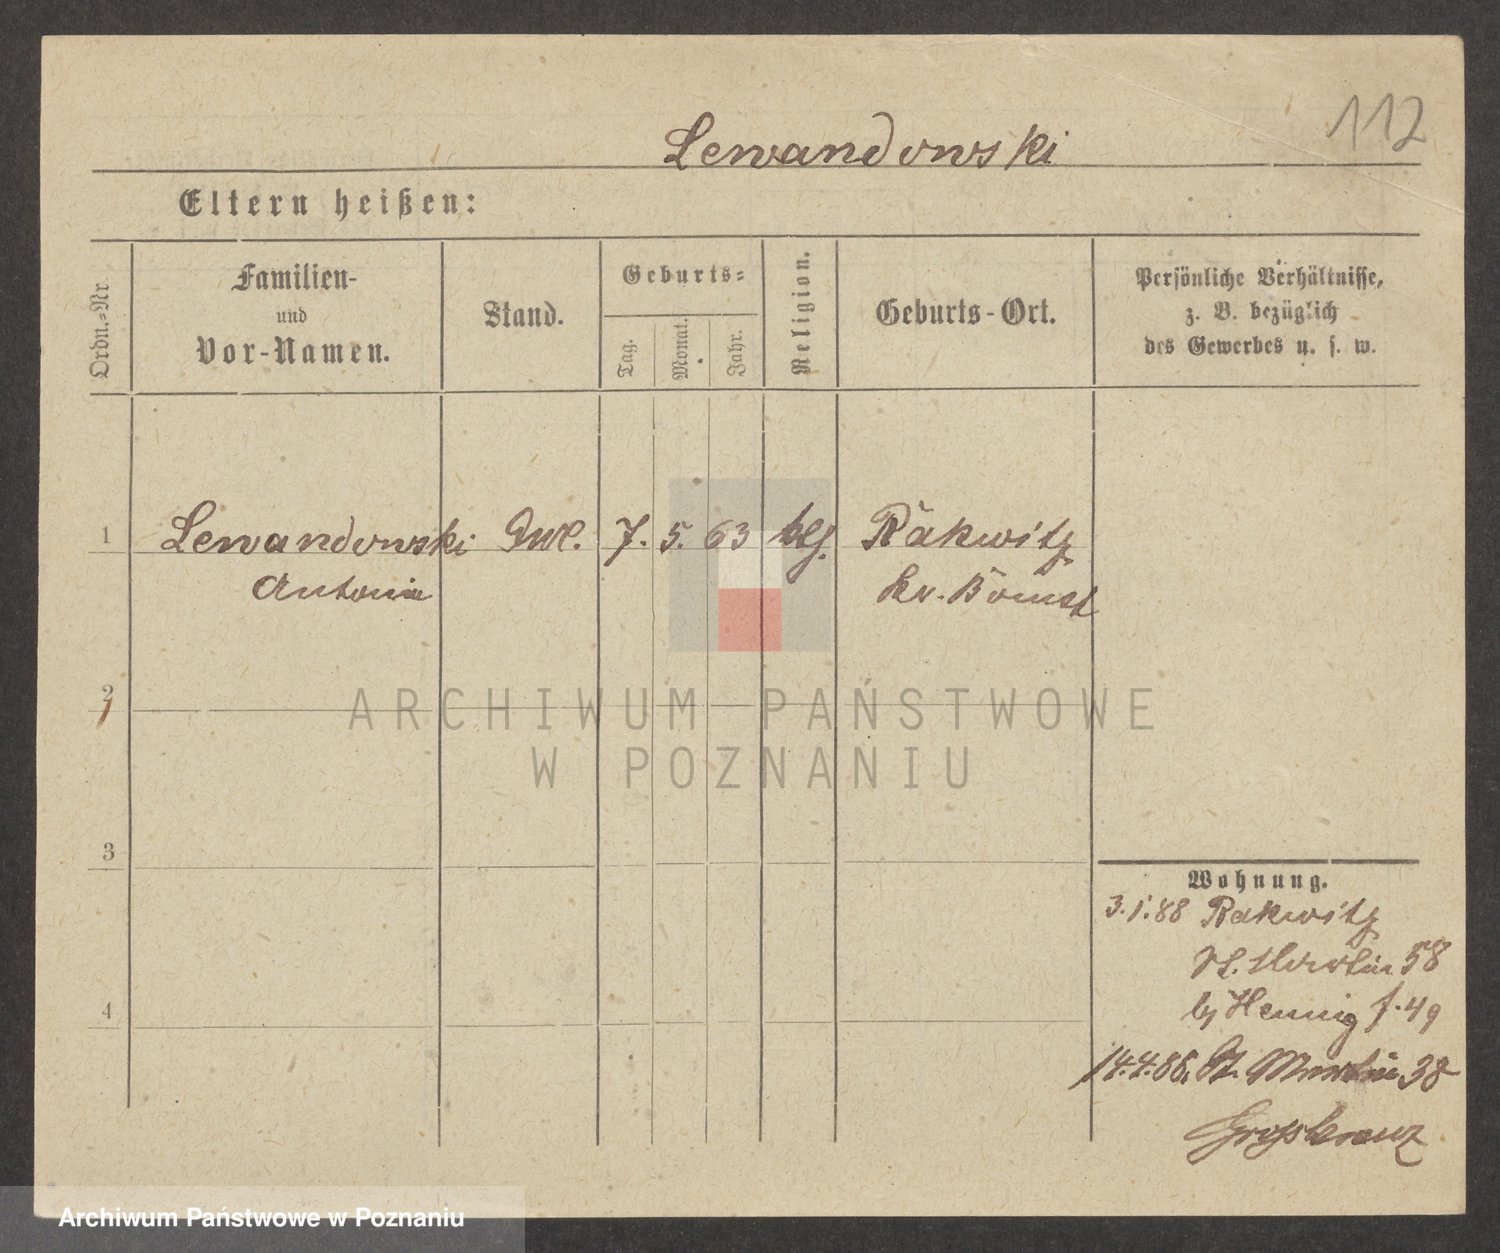 112
Lewandowski
Eltern heißen:
Ordn.=Nr.
Familien-
und
Vor-Namen.
Stand.
Geburts=
Tag.
Monat.
Jahr.
Religion.
Geburts-Ort.
Persönliche Verhältnisse,
z. B. bezüglich
des Gewerbes u. s. w.
1 Lewandowski 7. 5. 63 Rakwitz
Antonie Kr. Bomst
2
3
4
Wohnung.
3.1.88 Rakwitz
St. Martin 58
by Hennig f. 49
14.4.88. St. Martin 38
ARCHIWUM PAŃSTWOWE
W POZNANIU
Archiwum Państwowe w Poznaniu